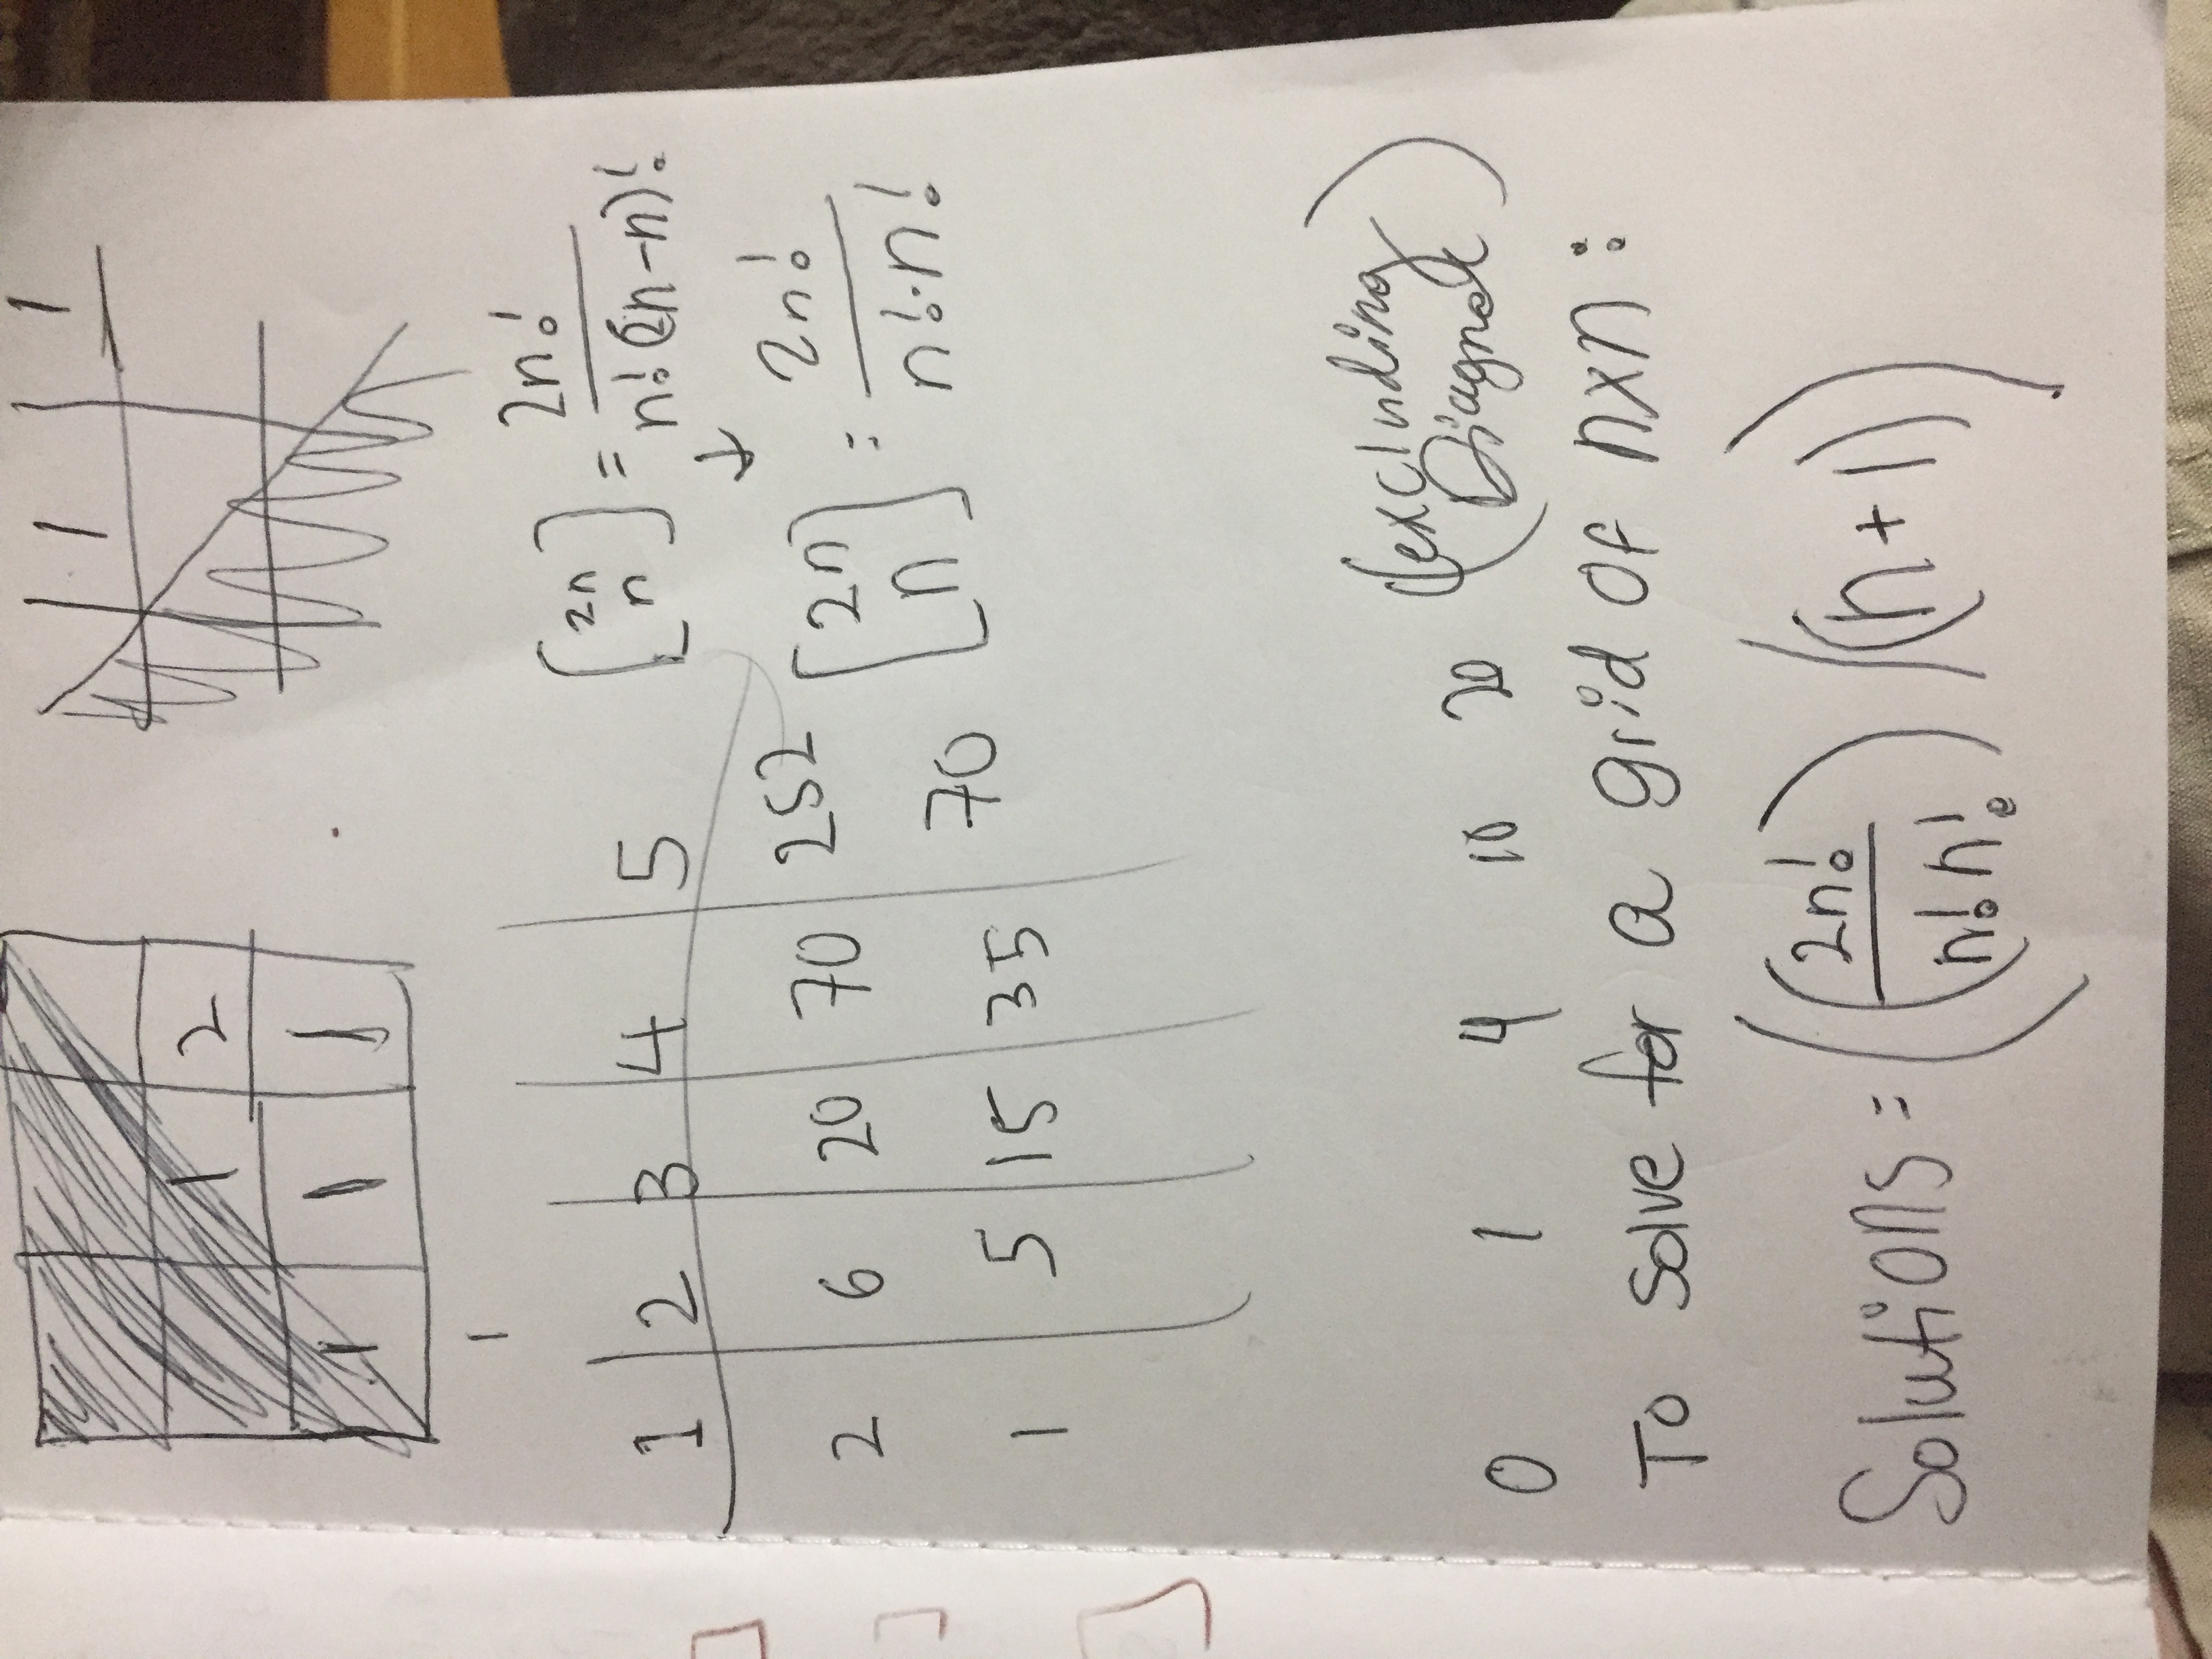 1 1
1 2
1 1 1
1
1 2 3 4 5
2 6 20 70 252
1 5 15 35 70
[2n n] = 2n! / n!(2n-n)!
↓
[2n n] = 2n! / n!·n!
0 1 4 10 20 (excluding
Diagnol)
To solve for a grid of nxn:
Solutions = ((2n! / n! n!) / (n+1))